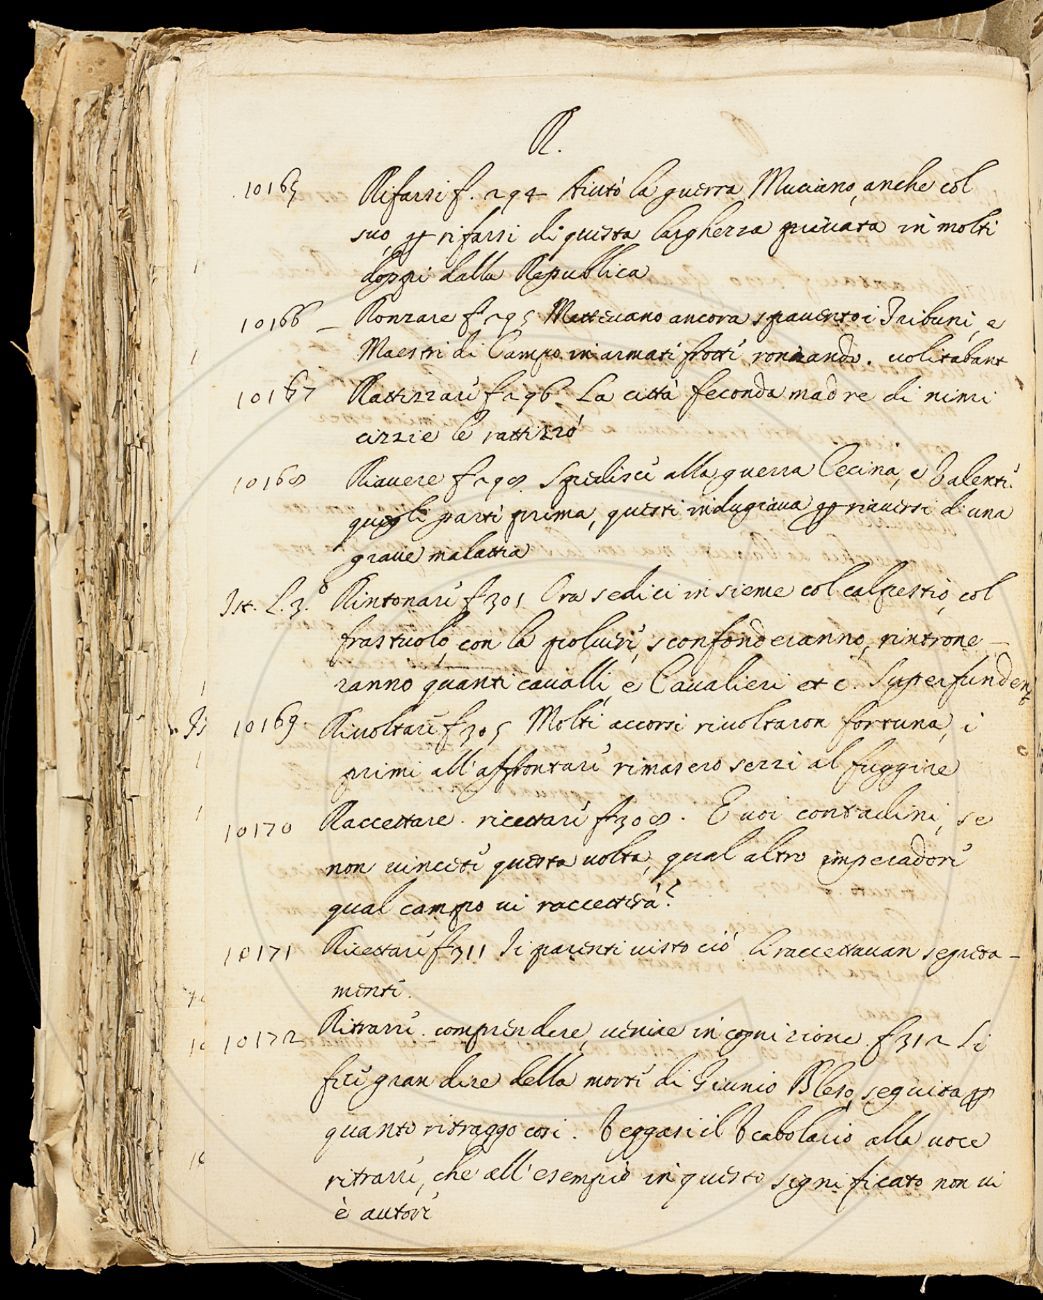 R.
10165 Rifarsi f. 294 Aiutò la guerra Muciano, anche col
suo, p rifarsi di questa larghezza privata in molti
doppi dalla Republica
10166 Ronzare f 295 Mettevano ancora spavento i Tribuni, e
Maestri di Campo in armati frotti ronzando. volitabant
10167 Rattizzare f 296 La città feconda madre di nimi
cizzie le rattizzò
10168 Riavere f 298 Spedisce alla guerra Cecina, e Valente
quegli parti prima, questi indugiava p riaversi d'una
grave malattia
Ist. L. 3.º Rintonare f 301 Ora sedici insieme col calpestio, col
frastuolo, con la polvere, sconfonderanno, rintrone-
ranno quanti cavalli, e Cavalieri etc. Superfundent
10169 Rivoltare f 305 Molti accorsi rivoltaron fortuna, i
primi all'affrontare rimasero sezzi al fuggire
10170 Raccettare. ricettare f 308. E voi contadini, se
non vincete questa volta, qual altro imperadore
qual campo vi raccetterà?
10171 Ricettare f 311 I parenti visto ciò lo raccettavan segreta-
mente.
10172 Ritrarre. comprendere, venire in cognizione f 312 Si
fece gran dire della morte di Giunio Bleso, seguita p
quanto ritraggo così. Veggasi il Vocabolario alla voce
ritrarre, che all'esempio in questo significato non vi
è autore